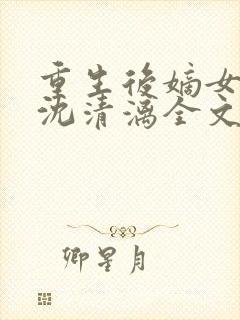 重生后嫡女
沈清漓全文
卿星月